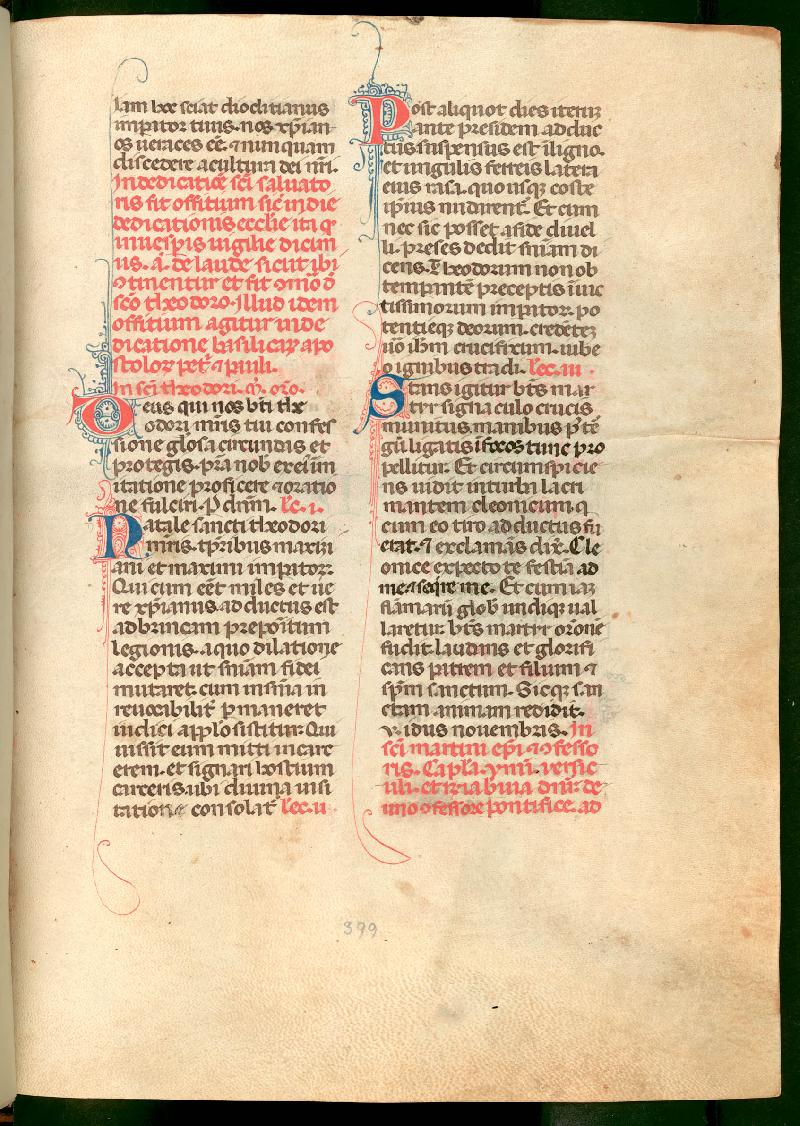 iam hoc sciat dioclitianus
impator tuus. nos xp̄ian
os ueraces eē. ⁊ nunquam
discedere a cultura dei nr̄i.
In dedicatiōe sc̄i saluato
ris fit offitium sic̄ in die
dedicationis ecclīe ita q̄
in uesp̄is uigilie dicūn
us. a. de laude sicut ibi
ↄtinentur et fit ↄm̄o d̄
sc̄o theodoro. Illud idem
offitium agitur in de
dicatione basilicaꝝ apo
stoloꝝ pet̄ ⁊ pauli.
In sc̄i theodori. m̄. or̄o.
Deus qui nos bt̄i the
odori mr̄is tui confes
sione gl̓osa circundas et
protegis. pr̄a nob̄ ex eī im
itatione proficere ⁊ oratio
ne fulciri. P dn̄m. Lc̄. i.
Natale sancti theodori
mr̄is. tp̄ribus maxi
ani et maximi impitoꝝ:
Qui cum eēt miles et ue
re xp̄ianus. ad ductus est
ad brincam prepoītum
legionis. a quo dilatione
accepta ut sn̄iam fidei
mutaret. cum in sn̄ia in
reuocabilit̄ pmaneret
iudici app̄lo sistitur. Qui
iussit eum mitti in carc
erem. et signari hostium
carceris. ubi diuina uisi
tatione consolat̄ Lec. ii
Post aliquot dies iteruꝫ
ante presidem ad duc
tus suspensus est ī ligno.
et ungulis ferreis latera
eius rasa. quo usqꝫ coste
ip̄ius nudarent̄. Et cum
nec sic posset a fide diuel
li. preses dedit sn̄iam di
cens. Theodorum non ob
temp̄antē preceptis īuic
tissimorum impitoꝝ. po
tentieqꝫ deorum. credēteꝫ
uō ih̄m crucifixum. iube
o ignibus tradi. Lec. iii.
Stans igitur bt̄s mar
tyr signa culo crucis
munitus. manibus p̄ tē
gū ligatis ī focos tunc pro
pellitur. Et circumspicie
ns uidit in turba lacri
mantem cleonicum. q
cum eo tiro ad ductus fu
erat. ⁊ exclamās dix̄. Cle
onice expecto te festīa ad
me ⁊ seqre me. Et cum iaꝫ
flāmarū glob̄ undiqꝫ ual
laretur. bt̄s martyr or̄onē
fudit. laudans et glorifi
cans patrem et filium ⁊
sp̄m sanctum. Sicqꝫ san
ctam animam redidit.
v. idus nouembris. In
sc̄i martini epī ⁊ ↄfesso
ris. Capl̄a. ymn̄. versic
uli. et r̄ia b̄uia dn̄r de
uno ↄfessore pontifice. ad
399